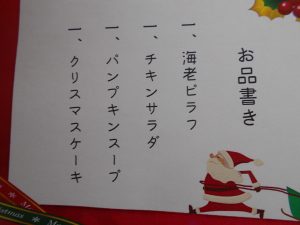 お品書き
一、海老ピラフ
一、チキンサラダ
一、パンプキンスープ
一、クリスマスケーキ